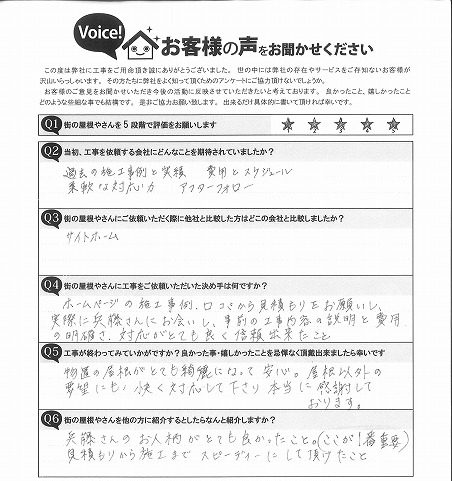 Voice!
お客様の声をお聞かせください
この度は弊社に工事をご用命頂き誠にありがとうございました。 世の中には弊社の存在やサービスをご存知ないお客様が
沢山いらっしゃいます。その方たちに弊社をよく知って頂くためのアンケートにご協力頂けないでしょうか。
お客様のご意見をお聞かせいただき今後の活動に反映させていただきたいと考えております。 良かったこと、嬉しかったこと
どのような些細な事でも結構です。 是非ご協力お願い致します。 出来るだけ具体的に書いて頂ければ幸いです。
Q1 街の屋根やさんを5段階で評価をお願いします
1 2 3 4 5
Q2 当初、工事を依頼する会社にどんなことを期待されていましたか？
過去の施工事例と実績 費用とスケジュール
柔軟な対応力 アフターフォロー
Q3 街の屋根やさんにご依頼いただく際に他社と比較した方はどこの会社と比較しましたか？
サイトホーム
Q4 街の屋根やさんに工事をご依頼いただいた決め手は何ですか？
ホームページの施工事例、口コミから見積もりをお願いし、
実際に兵藤さんにお会いし、事前の工事内容の説明と費用
の明確さ、対応がとても良く信頼出来たこと
Q5 工事が終わってみていかがですか？良かった事・嬉しかったことを忌憚なく頂戴出来ましたら幸いです
物置の屋根がとても綺麗になって安心。屋根以外の
要望にも、快く対応して下さり本当に感謝して
おります。
Q6 街の屋根やさんを他の方に紹介するとしたらなんと紹介しますか？
兵藤さんのお人柄がとても良かったこと。(ここが1番重要)
見積もりから施工までスピーディーにして頂けたこと